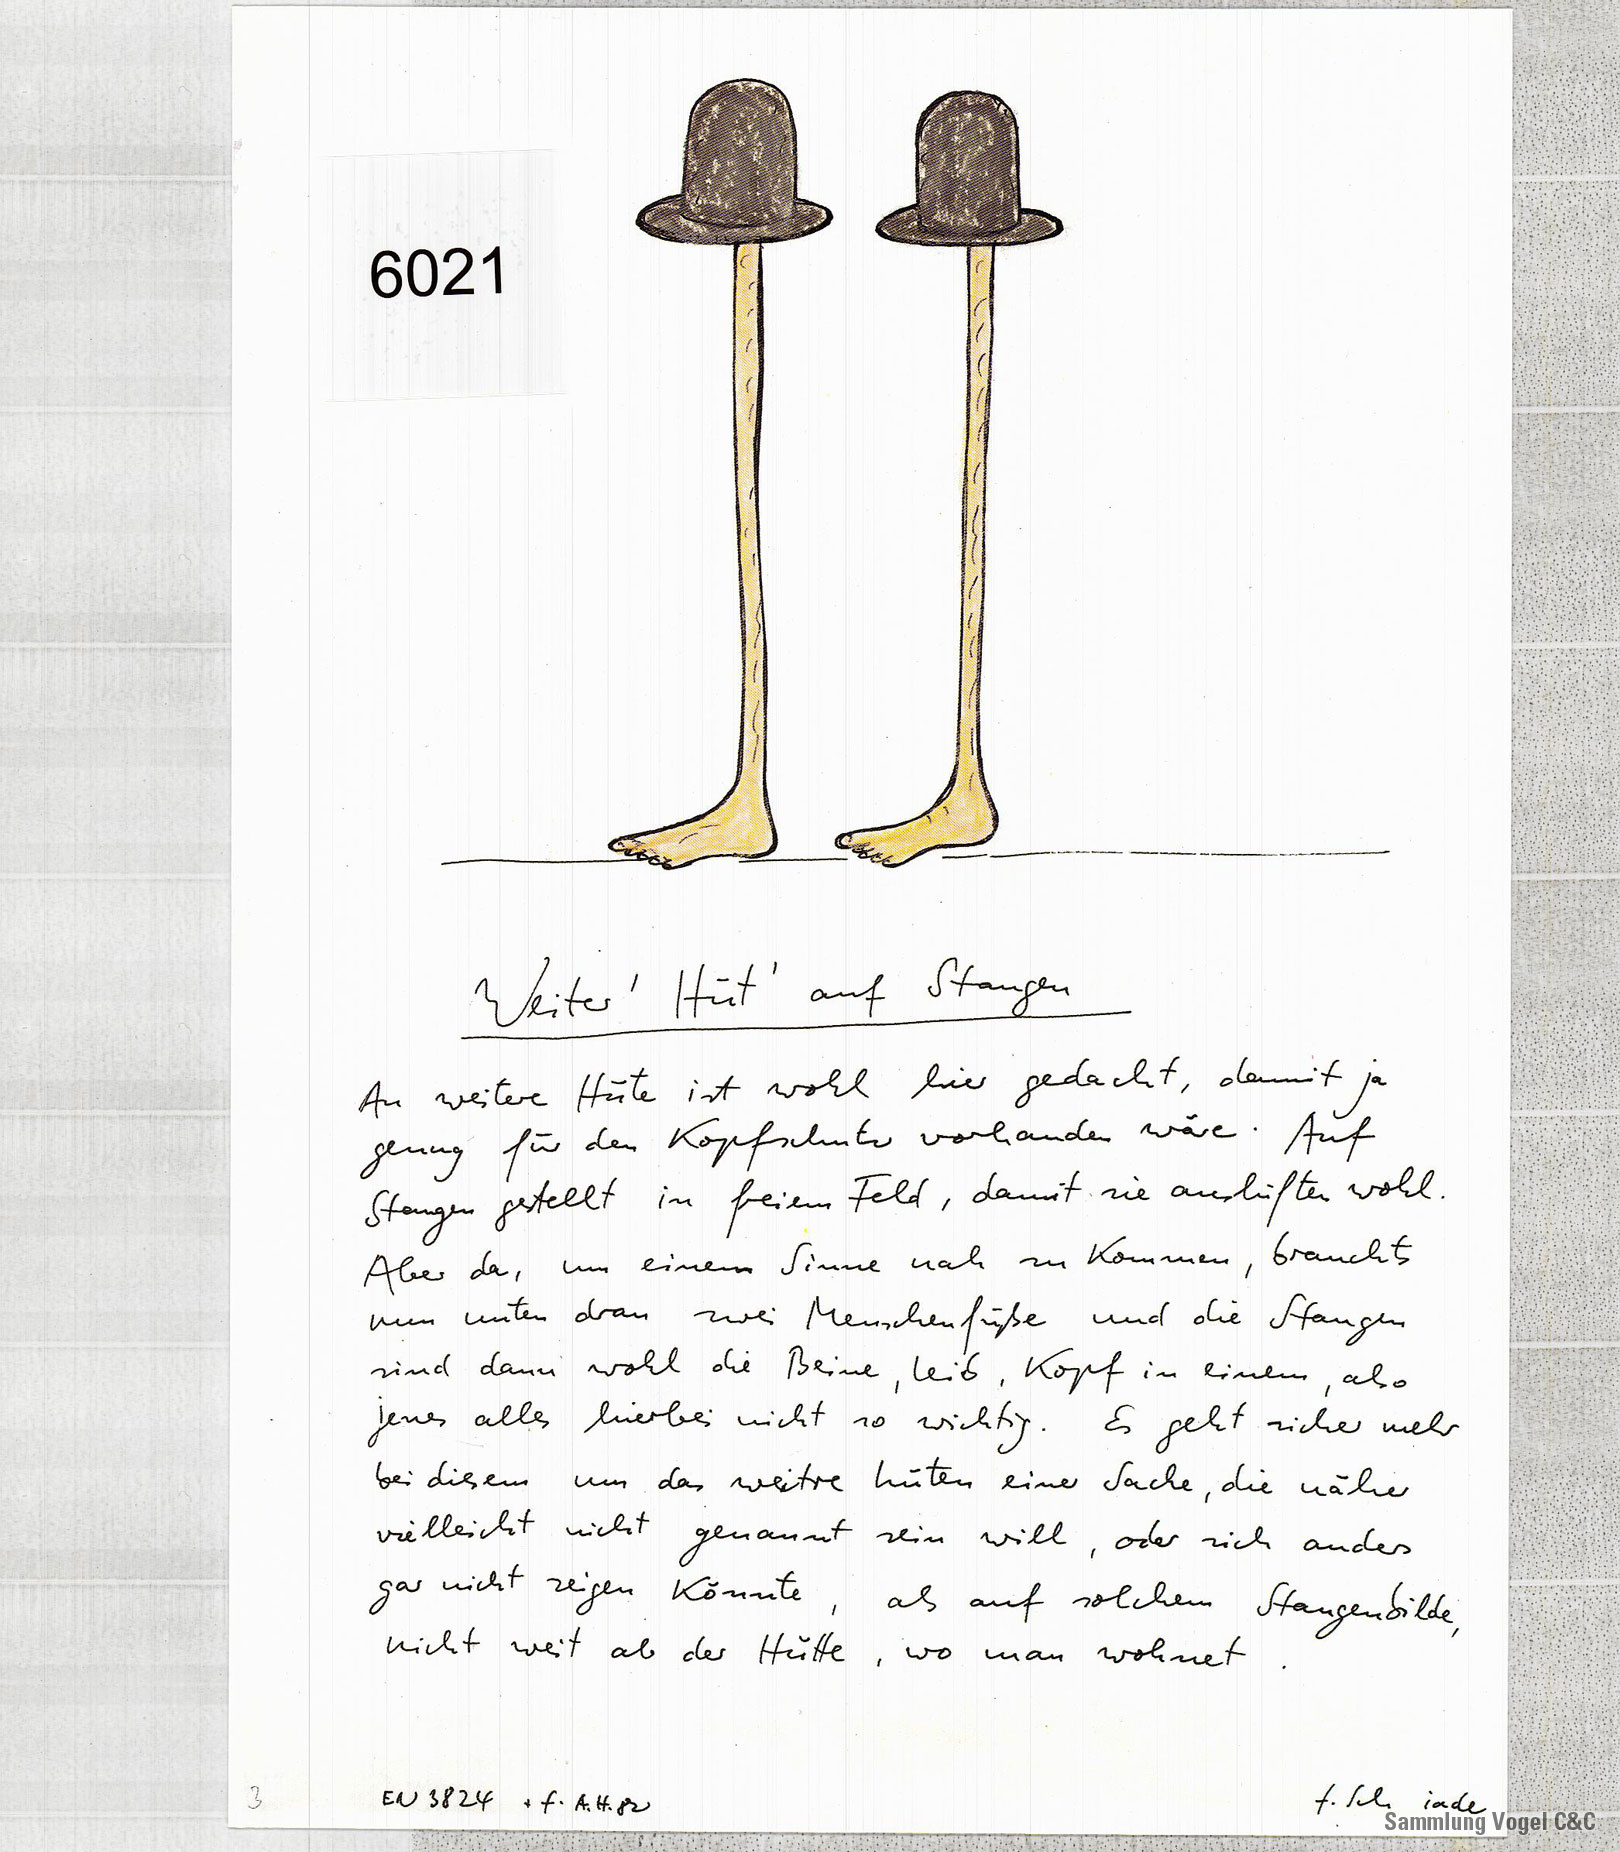 6021
Weiter' Hüt' auf Stangen
An weitere Hüte ist wohl hier gedacht, damit ja
genug für den Kopfschutz vorhanden wäre. Auf
Stangen gestellt in freiem Feld, damit sie auslüften wohl.
Aber da, um einem Sinne nah zu kommen, brauchts
nun unten dran zwei Menschenfüße und die Stangen
sind dann wohl die Beine, Leib, Kopf in einem, also
jenes alles hierbei nicht so wichtig. Es geht sicher mehr
bei diesem um das weitre hüten einer Sache, die näher
vielleicht nicht genannt sein will, oder sich anders
gar nicht zeigen könnte, als auf solchem Stangenbilde,
nicht weit ab der Hütte, wo man wohnet.
3
EN 3824 + f. A.H. 82
f. Sch iade
Sammlung Vogel C&C